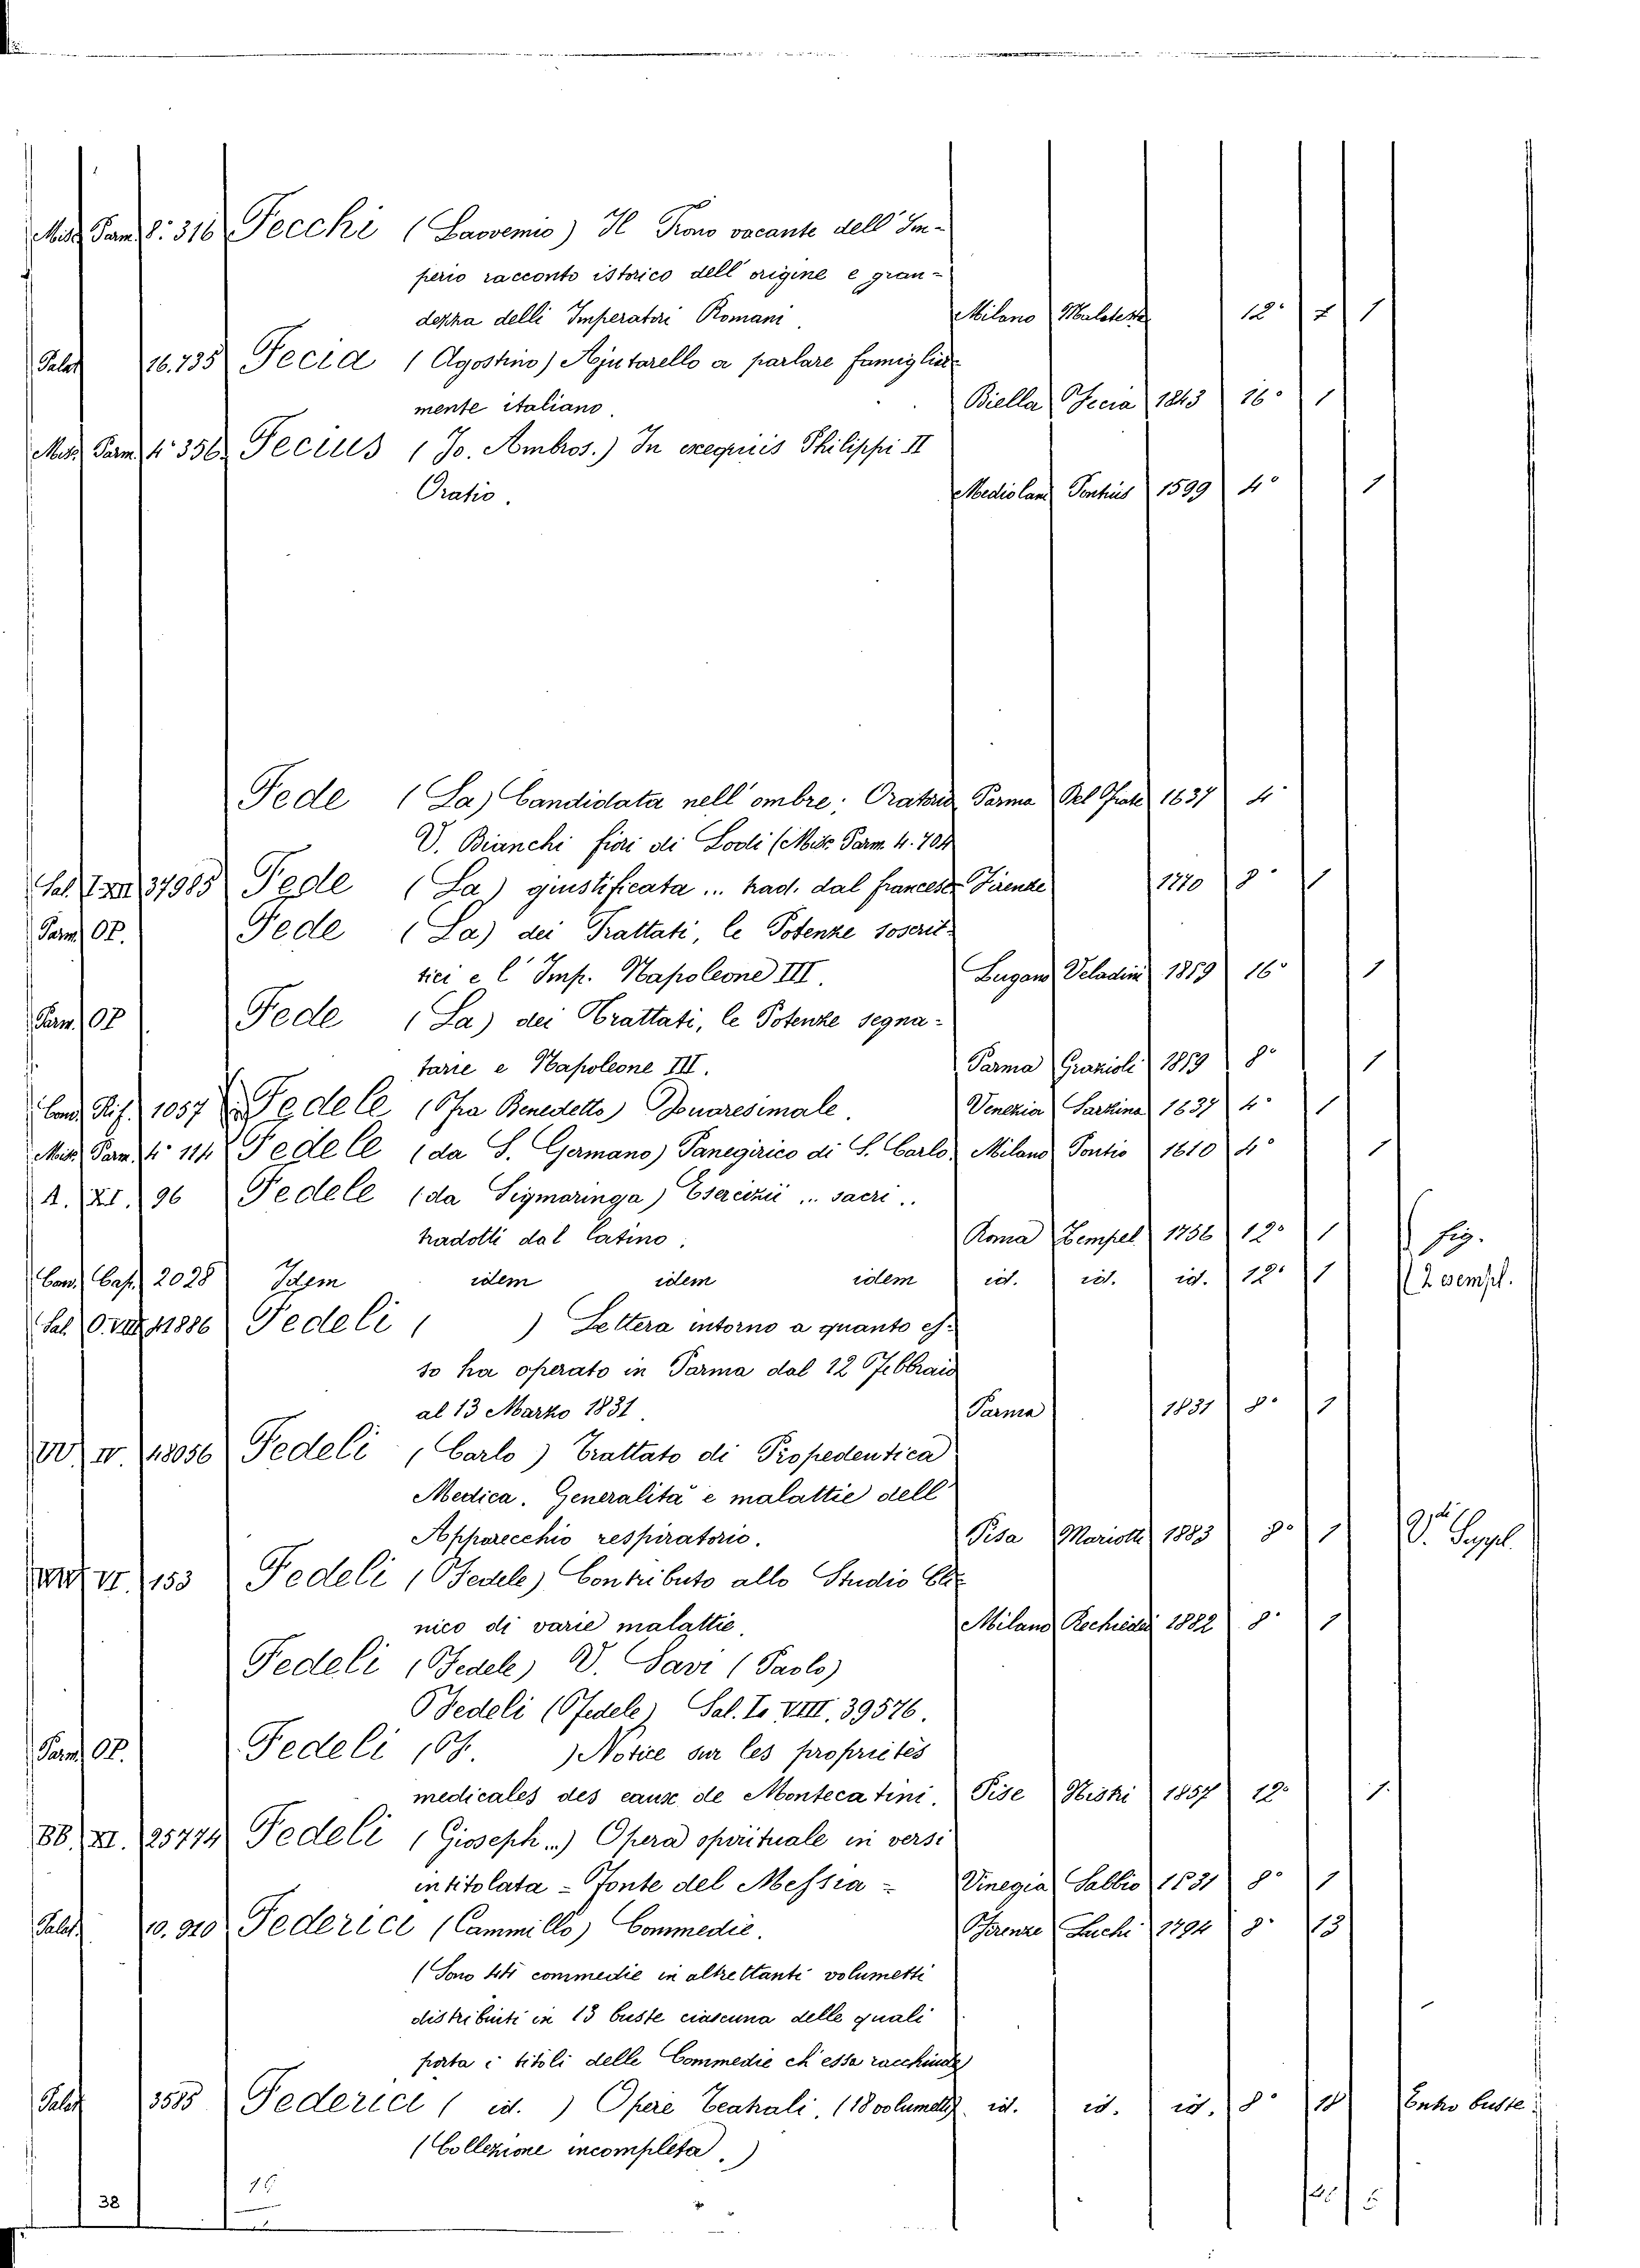 Misc. Parm. 8º. 316 Fecchi (Lavvenio) Il Trono vacante dell' Im-
perio racconto istorico dell' origine e gran-
dezza delli Imperatori Romani. Milano Malatesta 12º 1
Palat 16.735 Fecia (Agostino) Ajutarello a parlare famigliar-
mente italiano. Biella Fecia 1843 16º 1
Misc. Parm. 4º 356. Fecius (Jo. Ambros.) In exequiis Philippi II
Oratio. Mediolani Pontius 1599 4º 1
Fede (La) Candidata nell' ombre; Oratorio Parma Del Frate 1637 4º
V. Bianchi fiori di Lodi (Misc. Parm. 4. 704
Sal. I. XII 37985 Fede (La) giustificata ... trad. dal francese Firenze 1770 8º 1
Parm. OP. Fede (La) dei Trattati, le Potenze soscrit-
trici e l' Imp. Napoleone III. Lugano Veladini 1859 16º 1
Parm. OP Fede (La) dei Trattati, le Potenze segna-
tarie e Napoleone III. Parma Grazioli 1859 8º 1
Cond. Rif. 1057 Fedele (Fra Benedetto) Quaresimale. Venezia Sarzina 1637 4º 1
Misc. Parm. 4º 114 Fedele (da S. Germano) Panegirico di S. Carlo. Milano Pontio 1610 4º 1
A. XI. 96 Fedele (da Sigmaringa) Esercizii ... sacri ..
tradotti dal latino. Roma Zempel 1756 12º 1 fig.
Cond. Cap. 2028 Idem idem idem idem id. id. id. 12º 1 2 esempl.
Sal. O. VIII 41886 Fedeli ( ) Lettera intorno a quanto es-
so ha operato in Parma dal 12 Febbraio
al 13 Marzo 1831. Parma 1831 8º 1
W. IV. 48056 Fedeli (Carlo) Trattato di Propedeutica
Medica. Generalità e malattie dell'
Apparecchio respiratorio. Pisa Mariotti 1883 8º 1 V. Suppl.
VI. 153 Fedeli (Fedele) Contributo allo Studio Cli-
nico di varie malattie. Milano Rechiedei 1882 8º 1
Fedeli (Fedele) V. Savi (Paolo)
Fedeli (Fedele) Sal. I. VIII. 39576.
Parm. OP. Fedeli (F. ) Notice sur les propriétés
medicales des eaux de Montecatini. Pise Nistri 1857 12º 1
BB. XI. 25774 Fedeli (Gioseph...) Opera spirituale in versi
intitolata - Fonte del Messia - Vinegia Sabbio 1531 8º 1
Palat. 10.910 Federici (Cammillo) Commedie. Firenze Luchi 1794 8º 13
(Sono 44 commedie in altrettanti volumetti
distribuiti in 13 buste ciascuna delle quali
porta i titoli delle Commedie ch'essa racchiude)
Palat 3585 Federici ( id. ) Opere Teatrali. (18 volumetti) id. id. id. 8º 18 Entro buste
(Collezione incompleta.)
38 16